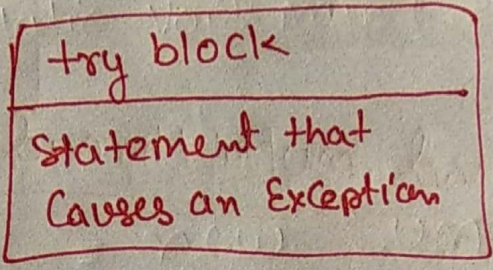 try block
Statement that
Causes an Exception